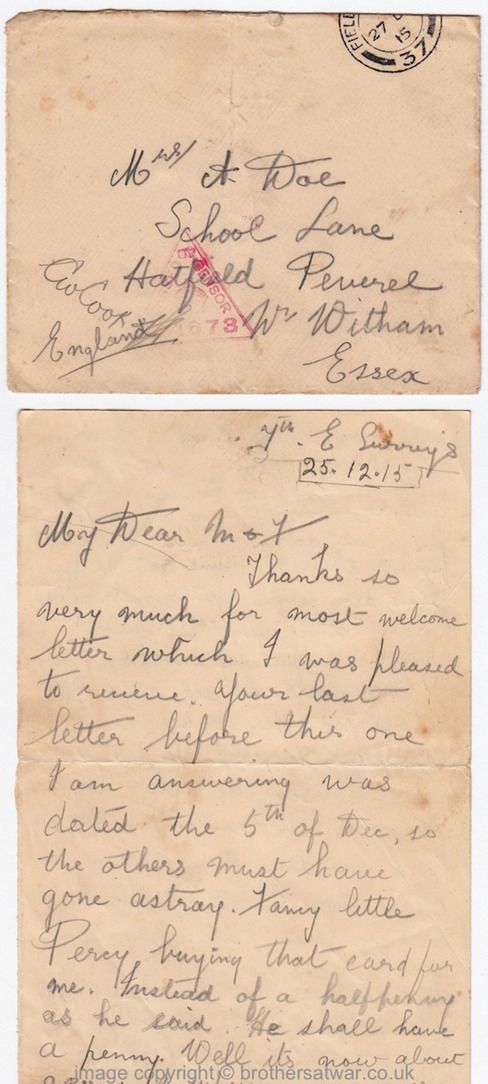 FIEL
27 D
15
37
Mrs/ A Doe
School Lane
Hatfield Peverel
Nr Witham
Essex
G W Cook
England
CENSOR
673
7th. E Surreys
25.12.15
My Dear M & F
Thanks so
very much for most welcome
letter which I was pleased
to receive. Your last
letter before this one
I am answering was
dated the 5th of Dec, so
the others must have
gone astray. Fancy little
Percy buying that card for
me. Instead of a halfpenny
as he said. He shall have
a penny. Well its now about
image copyright © brothersatwar.co.uk